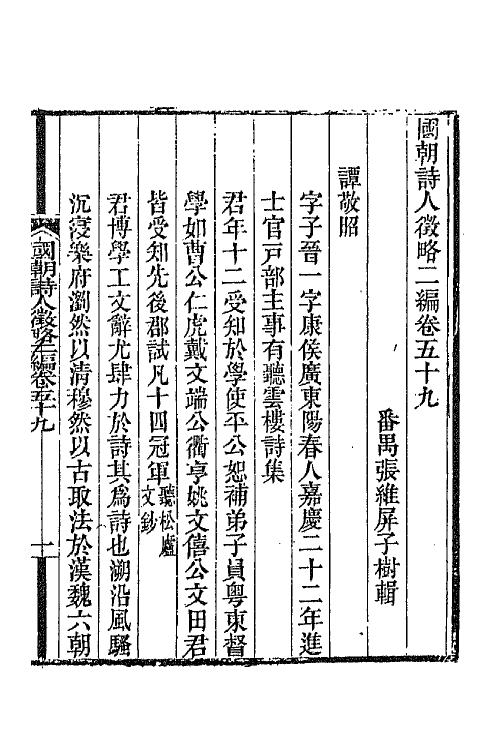 國朝詩人徵略二編卷五十九
番禺張維屏子樹輯
譚敬昭
字子晉一字康侯廣東陽春人嘉慶二十二年進
士官戸部主事有聽雲樓詩集
君年十二受知於學使平公恕補弟子員粤東督
學如曹公仁虎戴文端公衢亨姚文僖公文田君
皆受知先後郡試凡十四冠軍聽松廬文鈔
君博學工文辭尤肆力於詩其爲詩也溯沿風騷
沉浸樂府瀏然以清穆然以古取法於漢魏六朝
國朝詩人徵略二編卷五十九
一